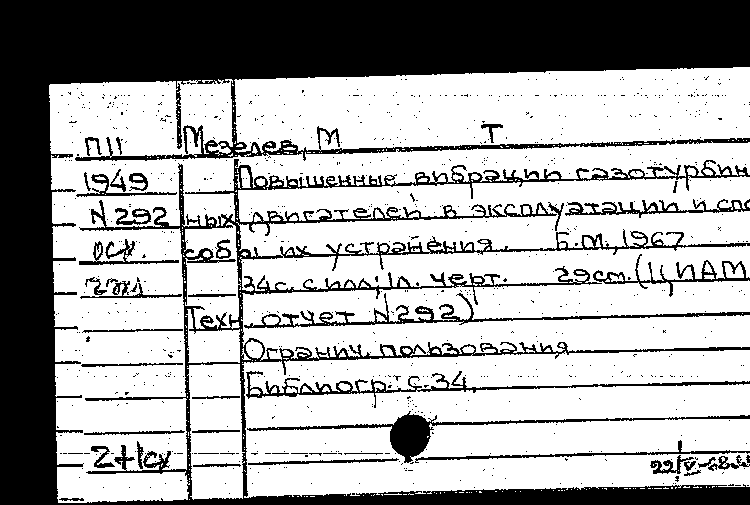 П11 Мезелев, М Т
1949 Повышенные вибрации газотурбин
N292 ных двигателей в эксплуатации и спо
осх. собы их устранения. Б.М., 1967
2экз 34с. с илл; 1л. черт. 29см. (ЦИАМ
Техн. отчет N292)
Огранич. пользования
Библиогр.: с.34.
2+1сх
22/V-68